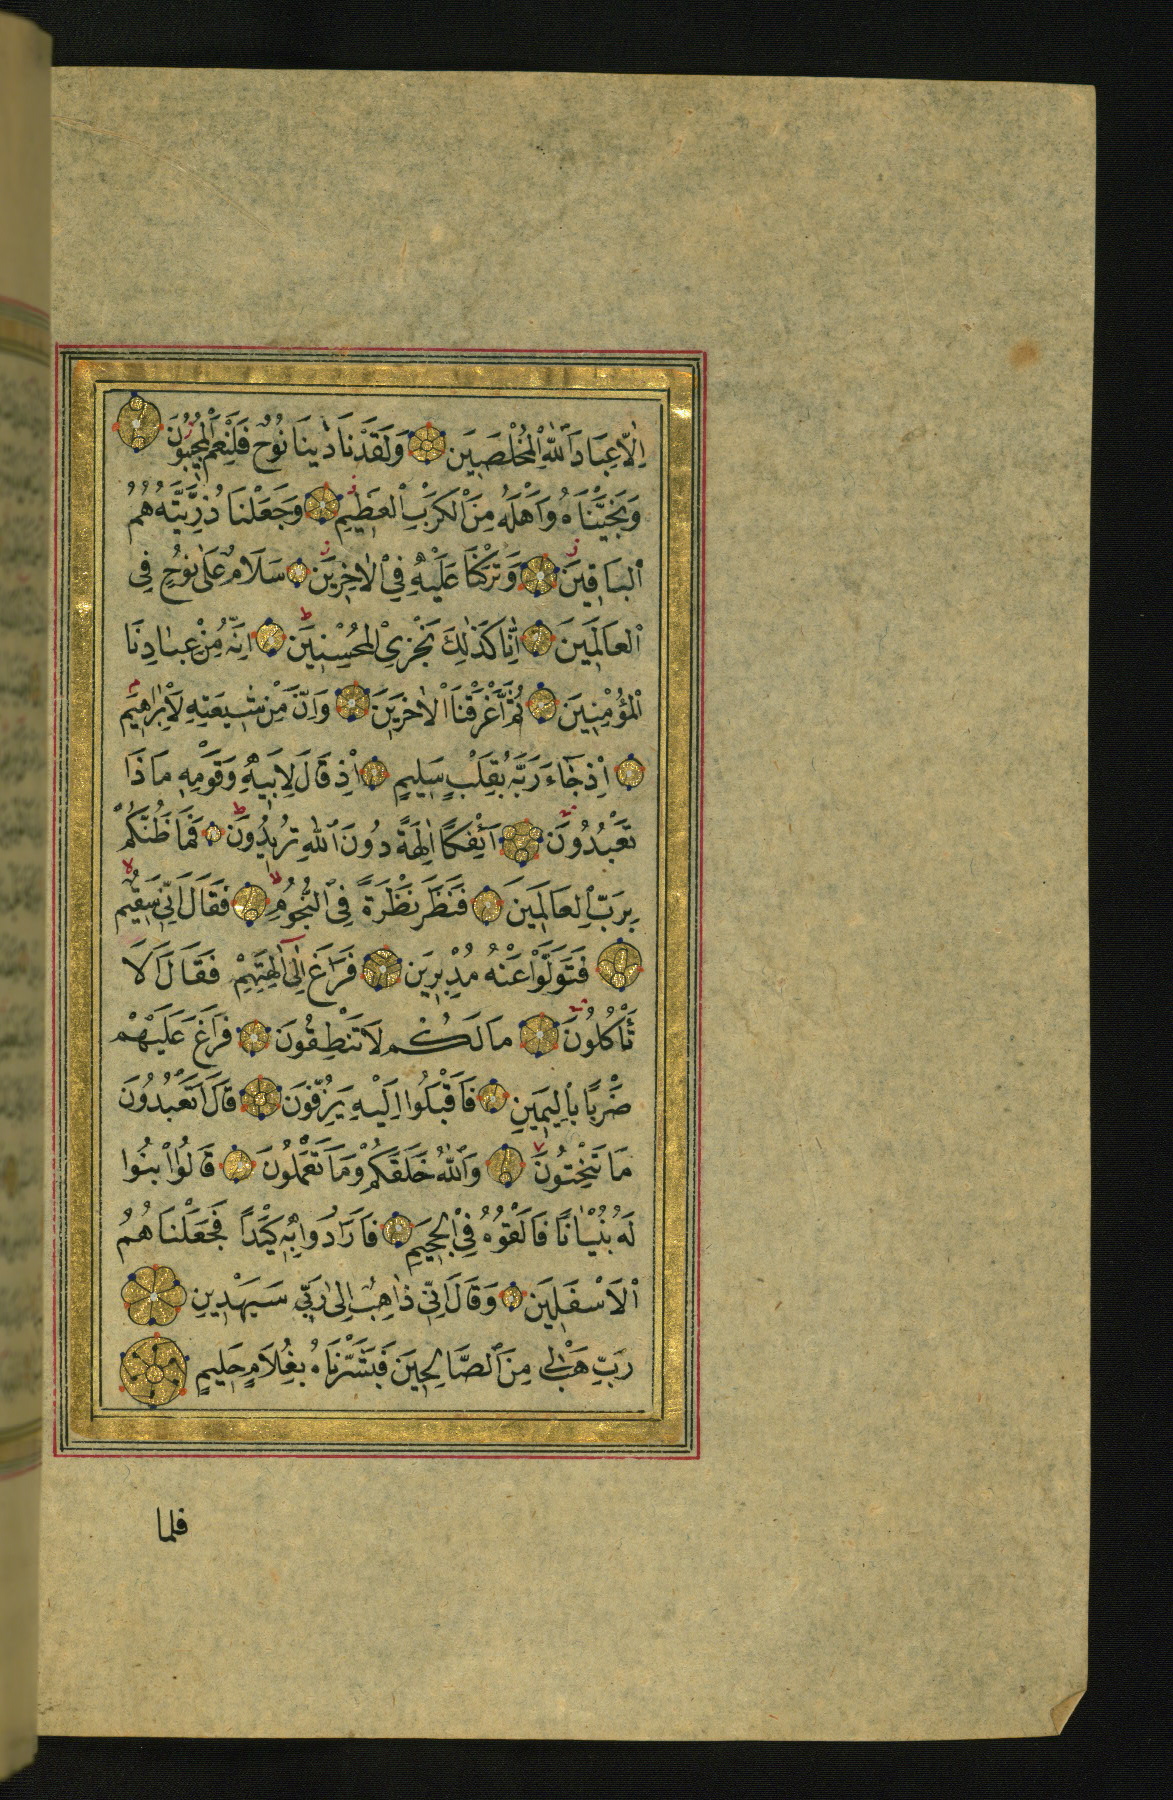 اِلَّا عِبَادَ اللّٰهِ الْمُخْلَصِينَ وَلَقَدْ نَادٰينَا نُوحٌ فَلَنِعْمَ الْمُجِيبُونَ
وَنَجَّيْنَاهُ وَاَهْلَهُ مِنَ الْكَرْبِ الْعَظِيمِ وَجَعَلْنَا ذُرِّيَّتَهُ هُمُ
الْبَاقِينَ وَتَرَكْنَا عَلَيْهِ فِي الْاٰخِرِينَ سَلَامٌ عَلٰى نُوحٍ فِي
الْعَالَمِينَ اِنَّا كَذٰلِكَ نَجْزِي الْمُحْسِنِينَ اِنَّهُ مِنْ عِبَادِنَا
الْمُؤْمِنِينَ ثُمَّ اَغْرَقْنَا الْاٰخَرِينَ وَاِنَّ مِنْ شِيعَتِهِ لَاِبْرٰهِيمَ
اِذْ جَاءَ رَبَّهُ بِقَلْبٍ سَلِيمٍ اِذْ قَالَ لِاَبِيهِ وَقَوْمِهِ مَاذَا
تَعْبُدُونَ اَئِفْكًا اٰلِهَةً دُونَ اللّٰهِ تُرِيدُونَ فَمَا ظَنُّكُمْ
بِرَبِّ الْعَالَمِينَ فَنَظَرَ نَظْرَةً فِي النُّجُومِ فَقَالَ اِنِّي سَقِيمٌ
فَتَوَلَّوْا عَنْهُ مُدْبِرِينَ فَرَاغَ اِلٰى اٰلِهَتِهِمْ فَقَالَ اَلَا
تَأْكُلُونَ مَا لَكُمْ لَا تَنْطِقُونَ فَرَاغَ عَلَيْهِمْ
ضَرْبًا بِالْيَمِينِ فَاَقْبَلُوا اِلَيْهِ يَزِفُّونَ قَالَ اَتَعْبُدُونَ
مَا تَنْحِتُونَ وَاللّٰهُ خَلَقَكُمْ وَمَا تَعْمَلُونَ قَالُوا ابْنُوا
لَهُ بُنْيَانًا فَاَلْقُوهُ فِي الْجَحِيمِ فَاَرَادُوا بِهِ كَيْدًا فَجَعَلْنَاهُمُ
الْاَسْفَلِينَ وَقَالَ اِنِّي ذَاهِبٌ اِلٰى رَبِّي سَيَهْدِينِ
رَبِّ هَبْ لِي مِنَ الصَّالِحِينَ فَبَشَّرْنَاهُ بِغُلَامٍ حَلِيمٍ
فلما